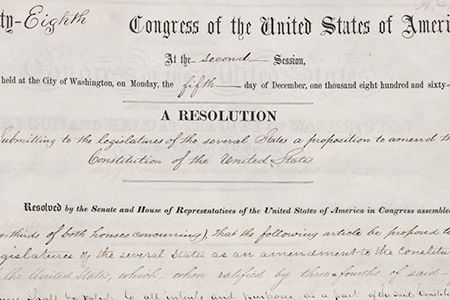 ty-Eighth Congress of the United States of Ameri
At the second Session,
held at the City of Washington, on Monday, the fifth day of December, one thousand eight hundred and sixty-
A RESOLUTION
Submitting to the legislatures of the several States a proposition to amend t
Constitution of the United States.
Resolved by the Senate and House of Representatives of the United States of America in Congress assemble
o-thirds of both houses concurring), that the following article be proposed t
legislatures of the several States as an amendment to the Constitu
the United States, which, when ratified by three-fourths of said
shall be valid, to all intents and purposes as a part of the said Constit